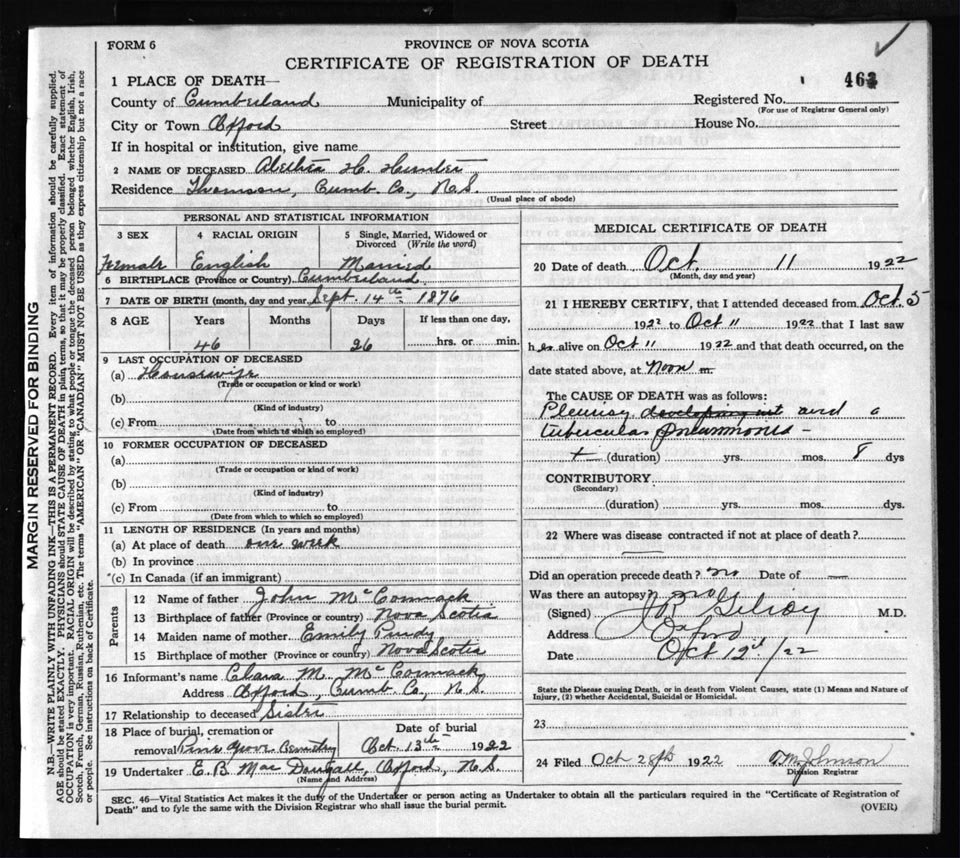 FORM 6
PROVINCE OF NOVA SCOTIA
CERTIFICATE OF REGISTRATION OF DEATH
1 PLACE OF DEATH—
463
County of Cumberland Municipality of Registered No.
(For use of Registrar General only)
City or Town Oxford Street House No.
If in hospital or institution, give name
2 NAME OF DECEASED Alethea H. Hunter
Residence Thomson, Cumb. Co., N.S.
(Usual place of abode)
PERSONAL AND STATISTICAL INFORMATION
3 SEX 4 RACIAL ORIGIN 5 Single, Married, Widowed or Divorced (Write the word)
Female English Married
6 BIRTHPLACE (Province or Country) Cumberland
7 DATE OF BIRTH (month, day and year) Sept. 14th 1876
8 AGE Years Months Days If less than one day,
46 26 hrs. or min.
9 LAST OCCUPATION OF DECEASED
(a) Housewife
(Trade or occupation or kind or work)
(b)
(Kind of industry)
(c) From to
(Date from which to which so employed)
10 FORMER OCCUPATION OF DECEASED
(a)
(Trade or occupation or kind of work)
(b)
(Kind of industry)
(c) From to
(Date from which to which so employed)
11 LENGTH OF RESIDENCE (In years and months)
(a) At place of death one week
(b) In province
*(c) In Canada (if an immigrant)
Parents
12 Name of father John McCormack
13 Birthplace of father (Province or country) Nova Scotia
14 Maiden name of mother Emily Purdy
15 Birthplace of mother (Province or country) Nova Scotia
16 Informant's name Clara M. McCormack
Address Oxford, Cumb. Co., N.S.
17 Relationship to deceased Sister
18 Place of burial, cremation or removal Pine Grove Cemetery
Date of burial Oct. 13th 1922
19 Undertaker E. B. MacDougall, Oxford, N.S.
(Name and Address)
MEDICAL CERTIFICATE OF DEATH
20 Date of death Oct. 11 1922
(Month, day and year)
21 I HEREBY CERTIFY, that I attended deceased from Oct. 5
1922 to Oct 11 1922 that I last saw
her alive on Oct 11 1922 and that death occurred, on
date stated above, at Noon m.
The CAUSE OF DEATH was as follows:
Pleurisy developing into and a
tubercular pneumonia -
(duration) yrs. mos. 8 dys
CONTRIBUTORY
(Secondary)
(duration) yrs. mos. dys.
22 Where was disease contracted if not at place of death?
Did an operation precede death? no Date of —
Was there an autopsy? no
(Signed) Gilroy M.D.
Address Oxford
Date Oct 12th/22
State the Disease causing Death, or in death from Violent Causes, state (1) Means and Nature of Injury, (2) whether Accidental, Suicidal or Homicidal.
23
24 Filed Oct 28th 1922 Johnson
Division Registrar
SEC. 46—Vital Statistics Act makes it the duty of the Undertaker or person acting as Undertaker to obtain all the particulars required in the "Certificate of Registration of
Death" and to fyle the same with the Division Registrar who shall issue the burial permit.
(OVER)
MARGIN RESERVED FOR BINDING
N.B.—WRITE PLAINLY WITH UNFADING INK—THIS IS A PERMANENT RECORD. Every item of information should be carefully supplied.
AGE should be stated EXACTLY. PHYSICIANS should STATE CAUSE OF DEATH in plain terms, so that it may be properly classified. Exact statement of
OCCUPATION is very important. RACIAL ORIGIN will be described by stating to what people or tongue the deceased person belonged whether English, Irish,
Scotch, French, German, Russian, Ruthenian, etc. The terms "AMERICAN" OR "CANADIAN" MUST NOT BE USED as they express citizenship but not a race
or people. See instructions on back of Certificate.